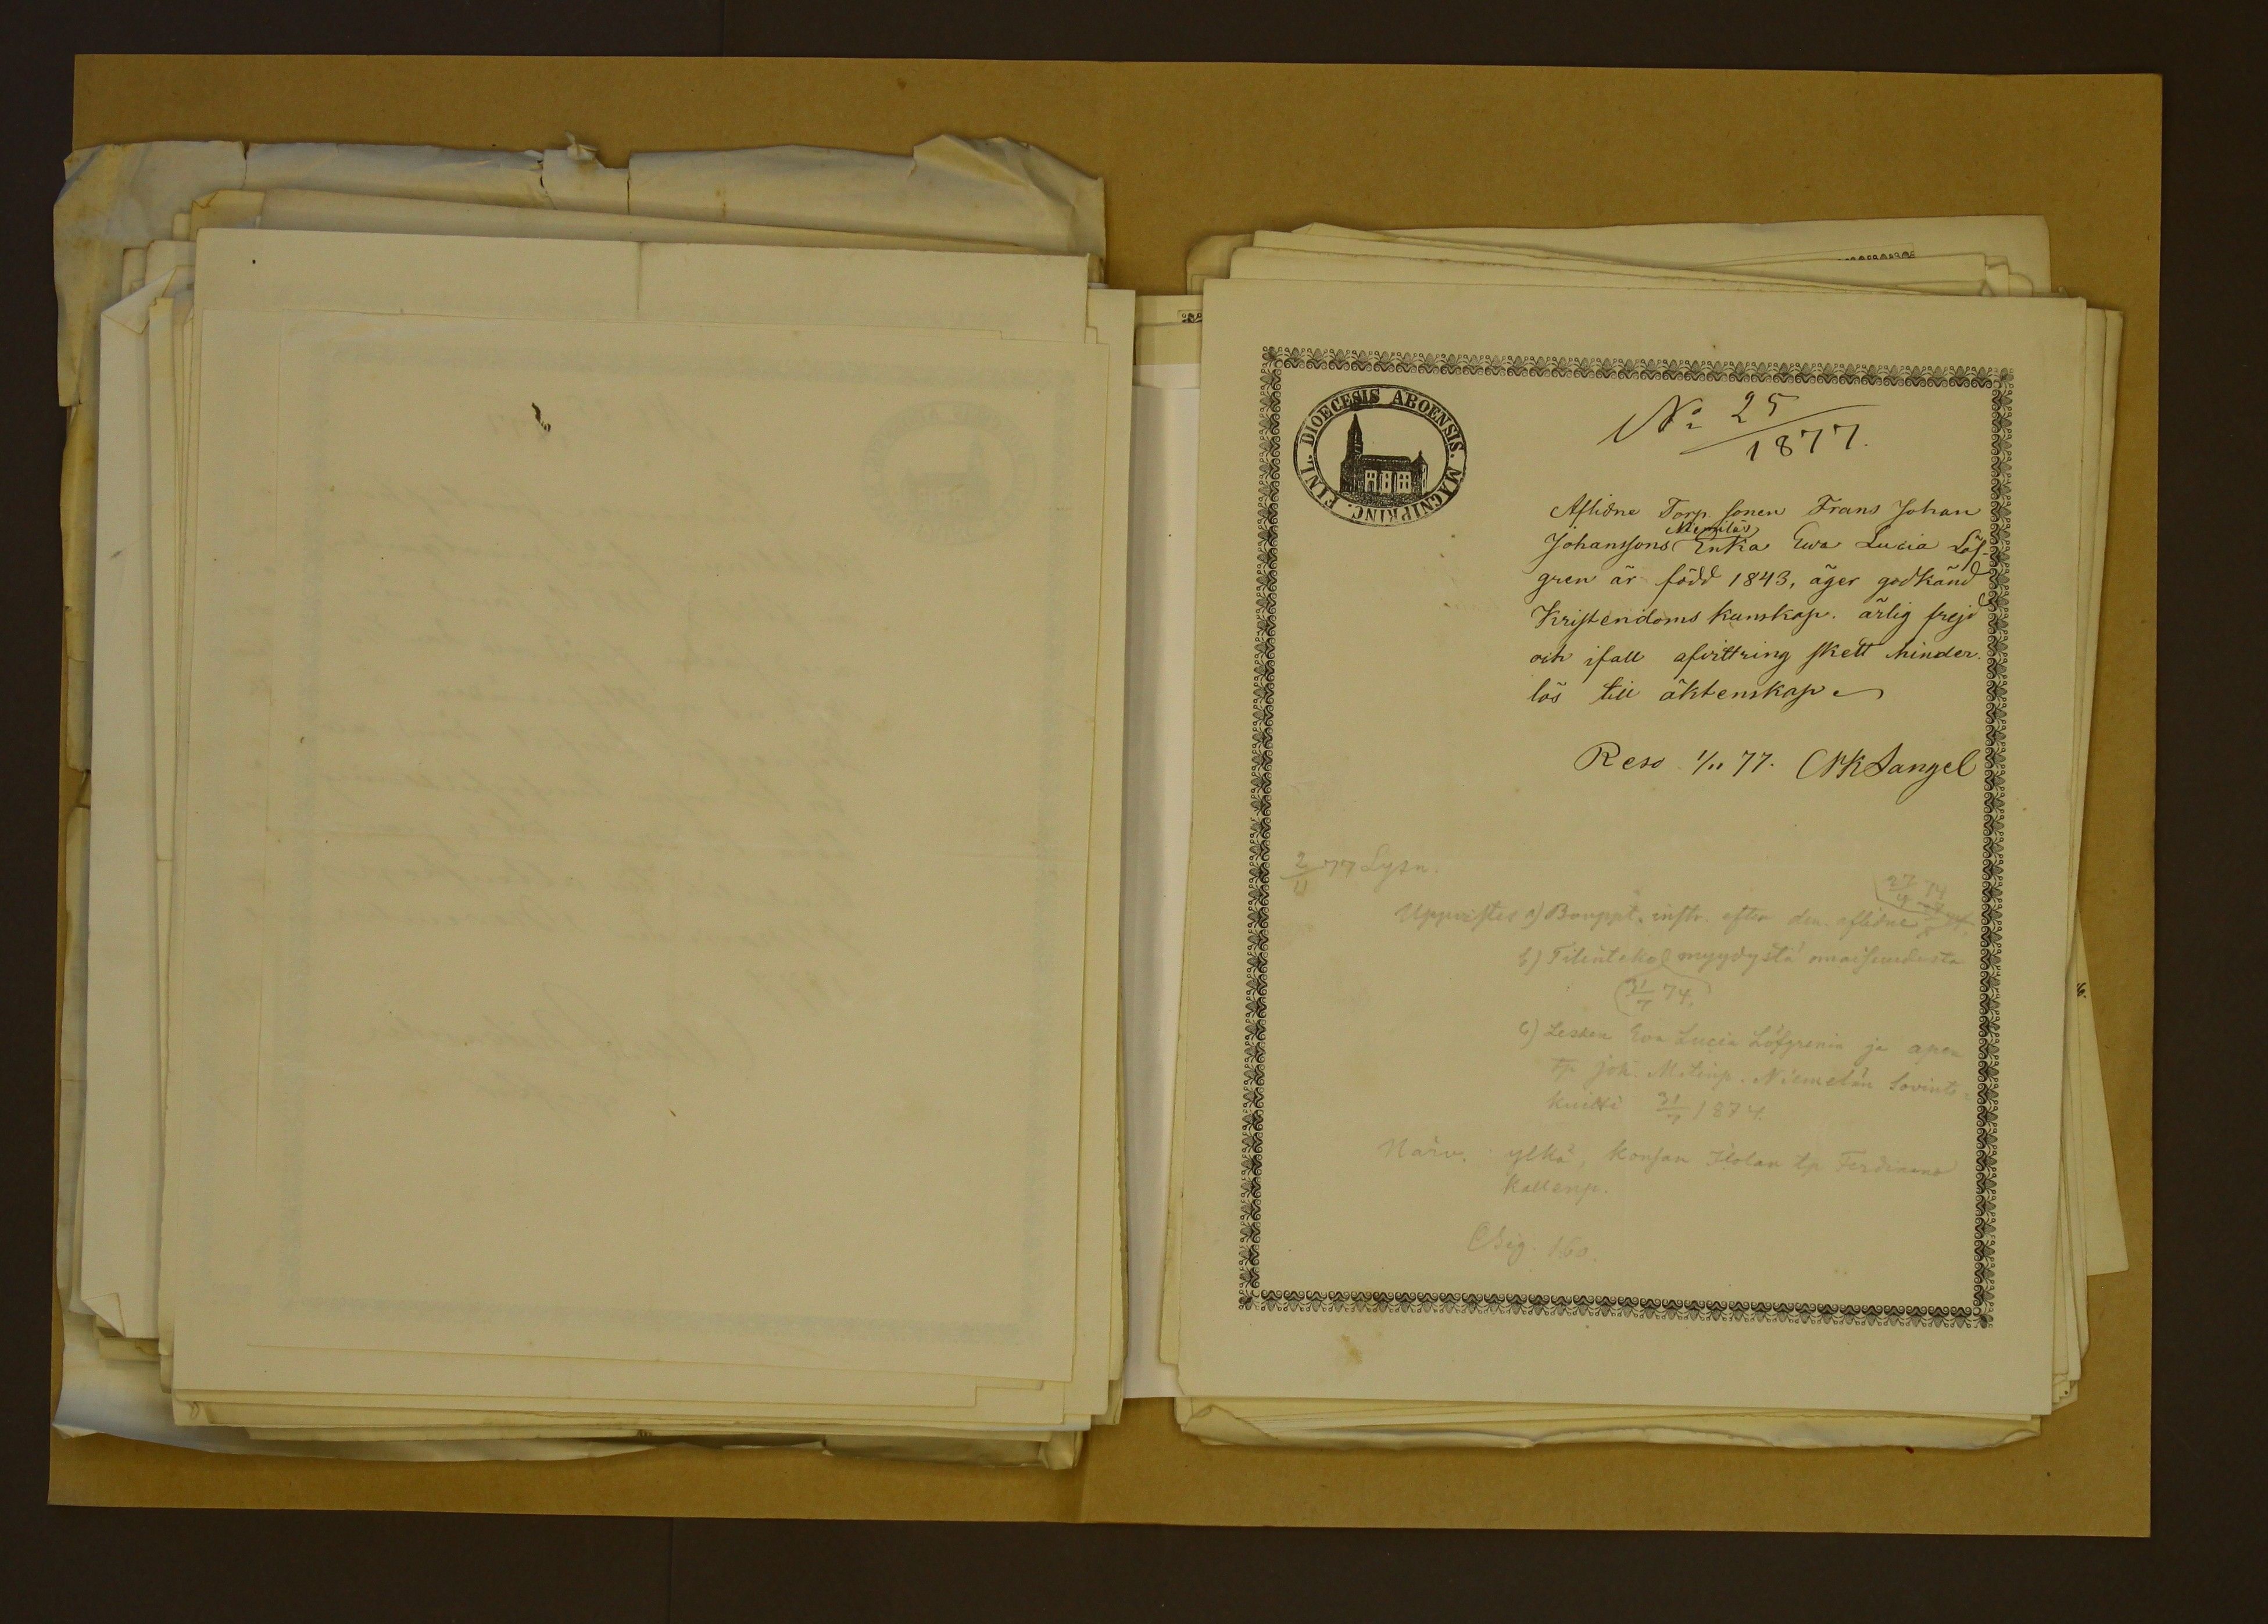 FINL. DIOECESIS ABOENSIS. MAGNIPRINC.
No 25
1877.
Aflidne Torp. sonen Frans Johan
Niemiläs
Johanssons Enka Ewa Lucia Löf-
gren är född 1843, äger godkänd
Kristendoms kunskap. ärlig frejd
och ifall afvittring skett hinder-
lös till äktenskap
Reso 1/11 77. Sangel
2/11 77 Lysn.
27/4 74
Uppvistes a) Bouppt. instr. efter den aflidne
b) Tilinteko myydystä omaisuudesta
31/7 74.
c) Lesken Eva Lucia Löfgrenin ja apen
Tp. joh. Matinp. Niemelän Sovinto-
kuitti 31/7 1874.
Närv. ylkä, Konsan Ilolan tp Ferdinand
Kallenp.
160.